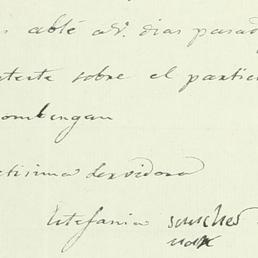 ablé a V. dias pasad
sobre el partic
ombengan
tisima servidora
Estefania sanches